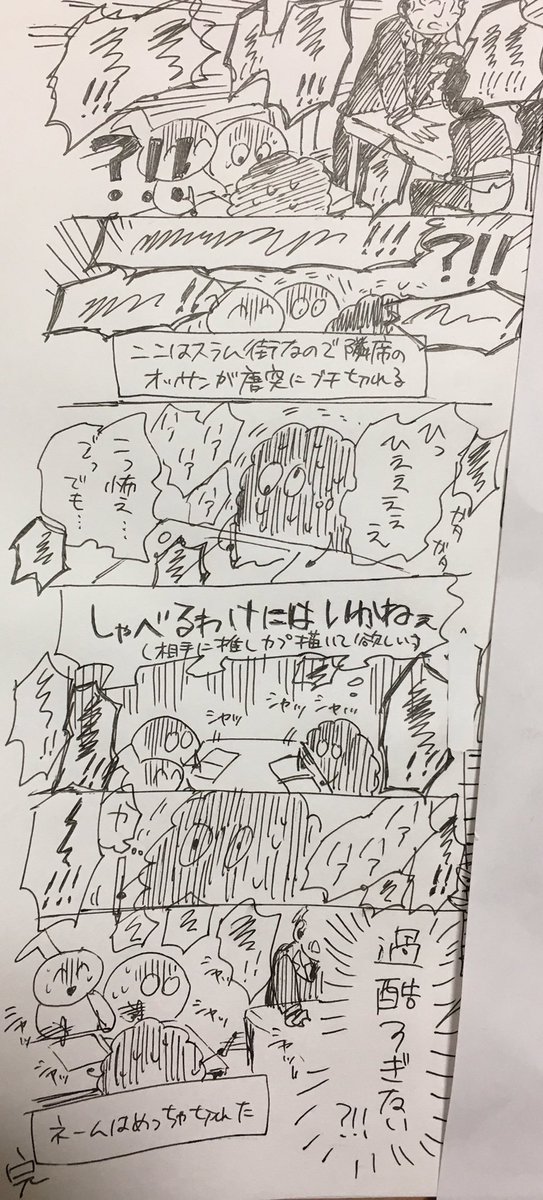 ?!!
!!!
?!!
ここはスラム街なので隣席の
オッサンが唐突にブチ切れる
ひっ
ひえええ
え
ガタ
ガタ
こっ怖え…
でっ
でも…
しゃべるわけにはいかねぇ
(相手に推しカプ描いて欲しい)
シャッ
シャッ
シャッ
!!!
か…
!!!
過酷すぎない
?!!
シャッ
シャッ
シャッ
シャッ
シャッ
ネームはめっちゃ切れた
完